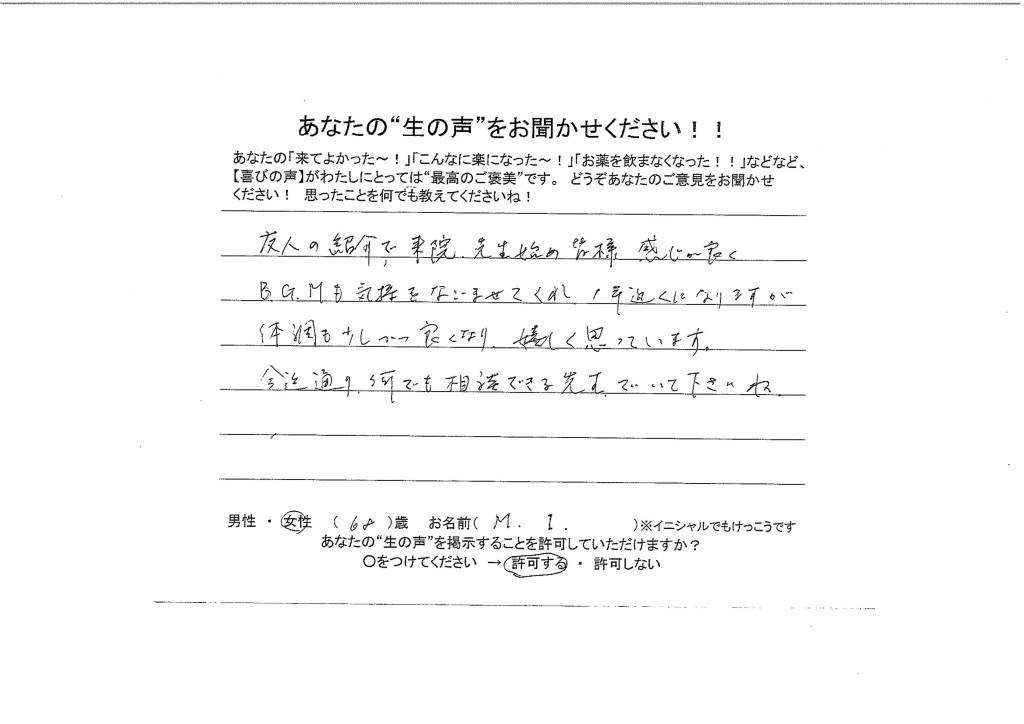 あなたの“生の声”をお聞かせください！！
あなたの「来てよかった～！」「こんなに楽になった～！」「お薬を飲まなくなった！！」などなど、
【喜びの声】がわたしにとっては“最高のご褒美”です。 どうぞあなたのご意見をお聞かせ
ください！ 思ったことを何でも教えてくださいね！
友人の紹介で、来院、先生始め皆様 感じが良く
B.G.Mも気持をなごませてくれ、1年近くになりますが
体調も少しづつ良くなり、嬉しく思っています。
今迄通り、何でも相談できる先生でいて下さいね。
男性 ・ 女性 （ 68 ）歳 お名前（ M. I. ）※イニシャルでもけっこうです
あなたの“生の声”を掲示することを許可していただけますか？
〇をつけてください → 許可する ・ 許可しない